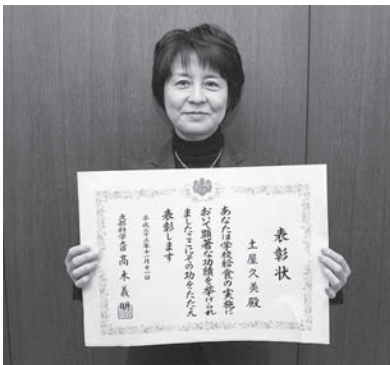 表彰状
土屋久美殿
あなたは学校給食の実施に
おいて顕著な功績を挙げられ
ましたここにその功をたたえ
表彰します
平成二十二年十一月十一日
文部科学大臣 高木義明